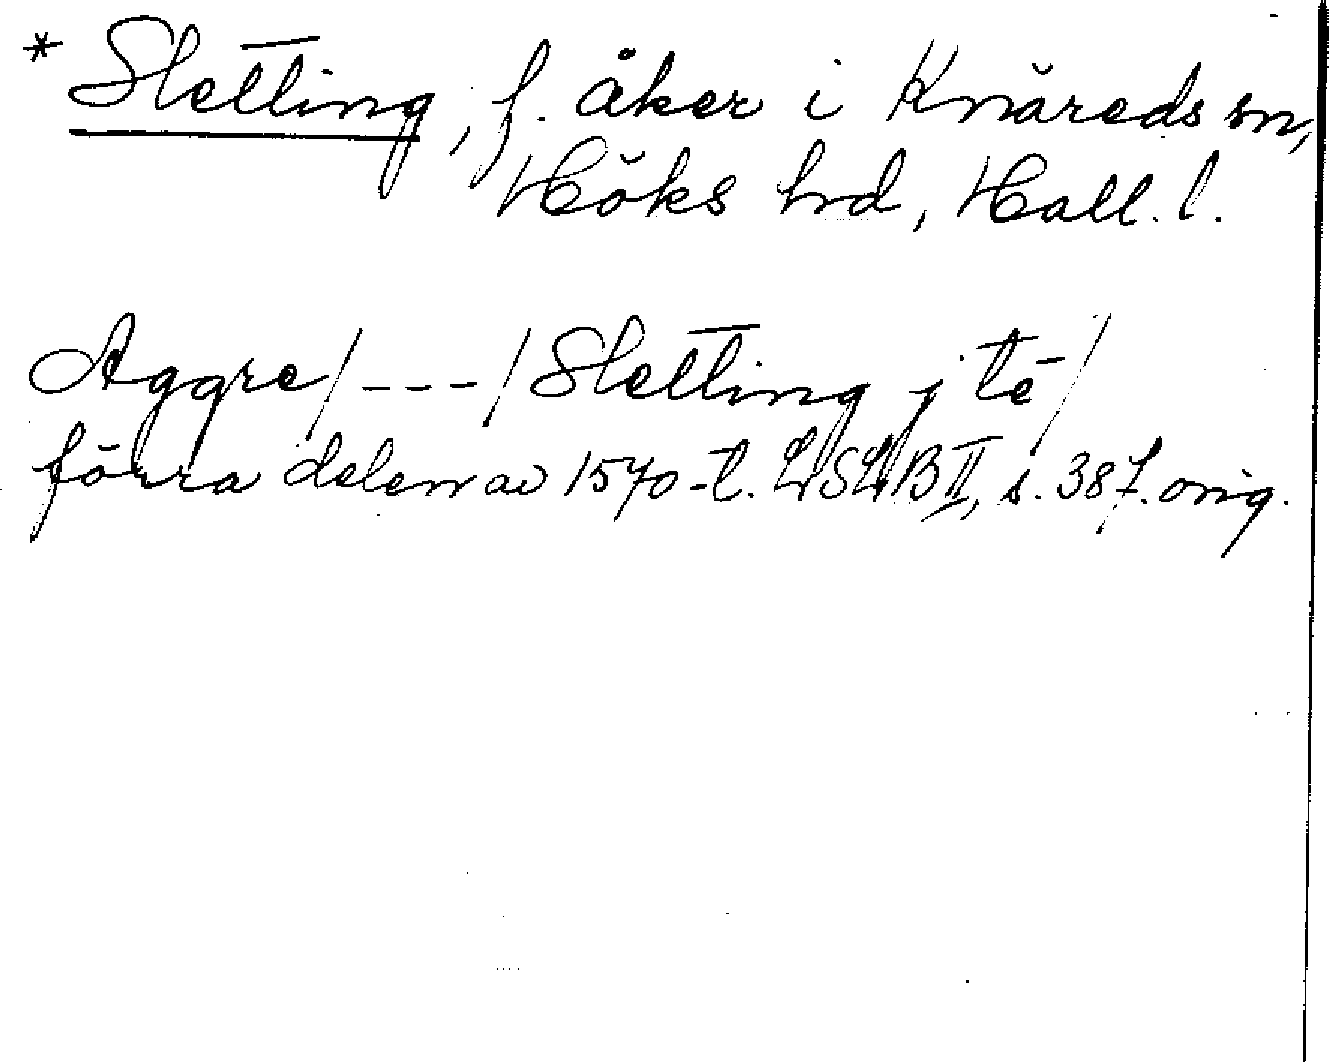 * Sletting, f. åker i Knäreds sn,
Höks hrd, Hall. l.
Aggre/---/Sletting j te-/
förra delen av 1570-t. LSLB II, s. 387. orig.